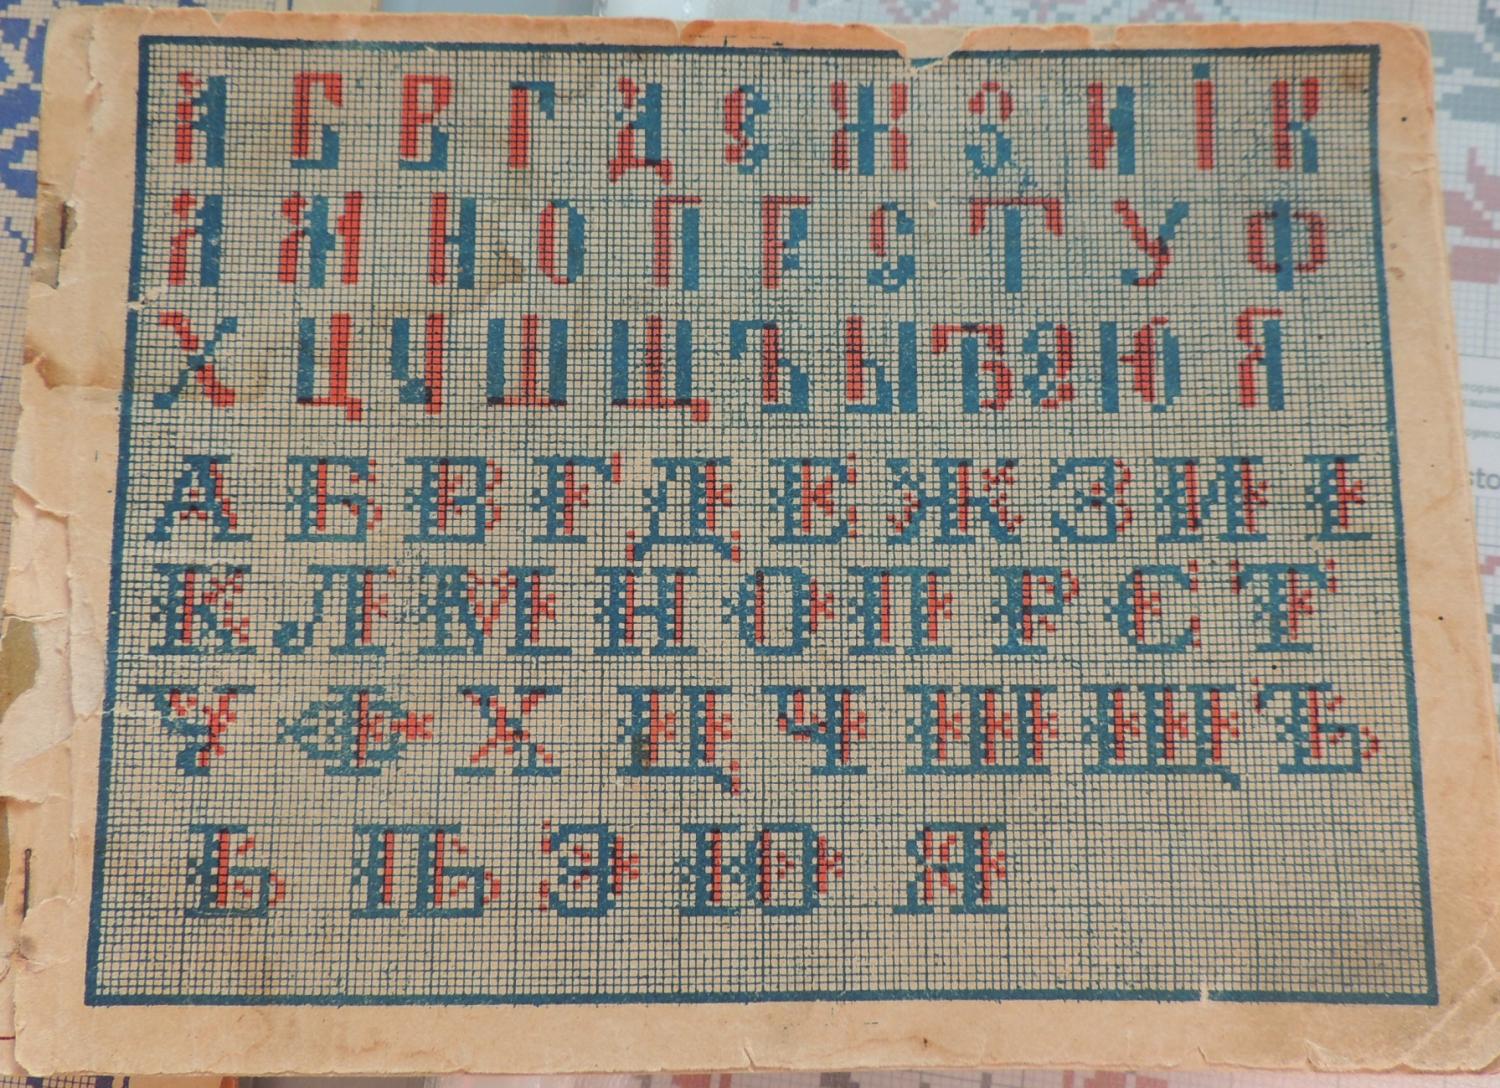 А Б В Г Д Е Ж З И І К
Л М Н О П Р С Т У Ф
Х Ц Ч Ш Щ Ъ Ы Ѣ Э Ю Я
А Б В Г Д Е Ж З И І
К Л М Н О П Р С Т
У Ф Х Ц Ч Ш Щ Ъ
Ь Ы Э Ю Я